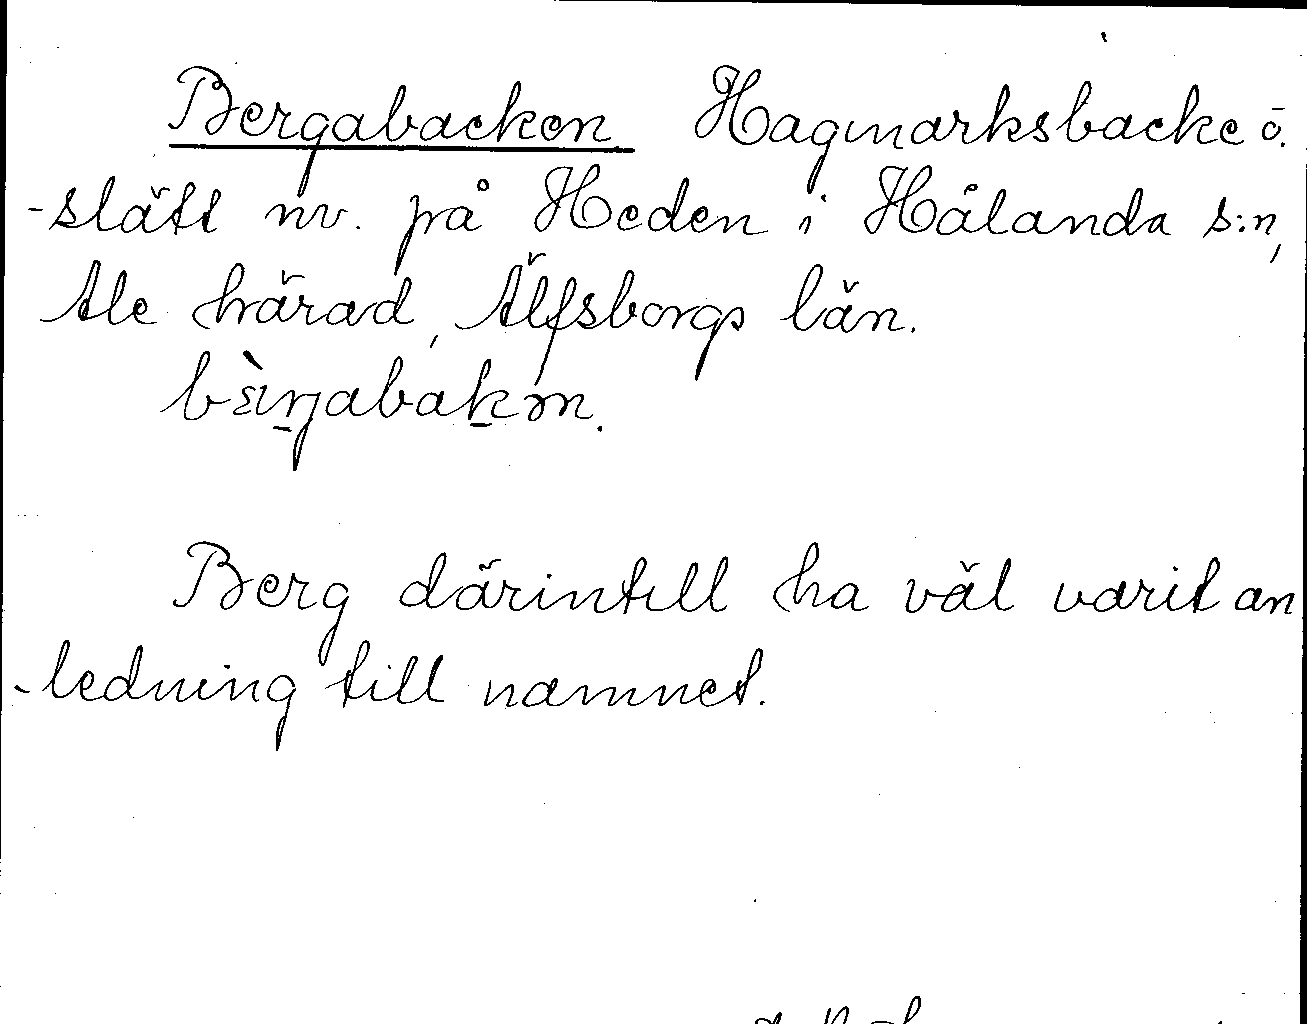 Bergabacken Hagmarksbacke o.
-slätt nv. på Heden i Hålanda s:n,
Ale härad, Älfsborgs län.
Berg därintill ha väl varit an
-ledning till namnet.